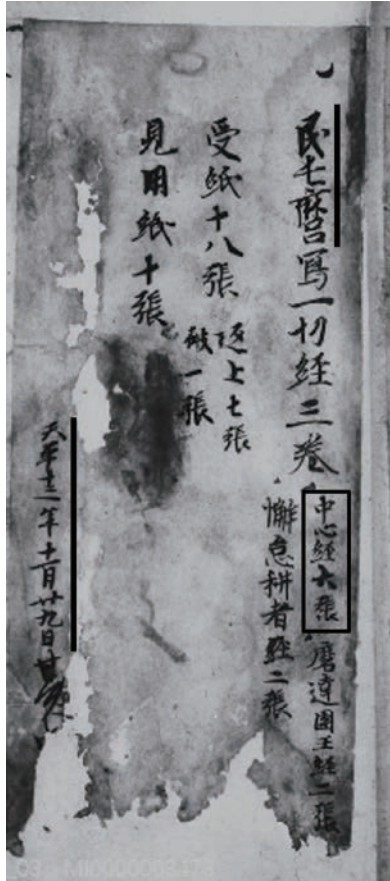 民屯麿寫一切經三巻
中心經六張
摩達國王經二張
懈怠耕者經二張
受紙十八張
返上七張
破一張
見用紙十張
天平十二年 月廿九日